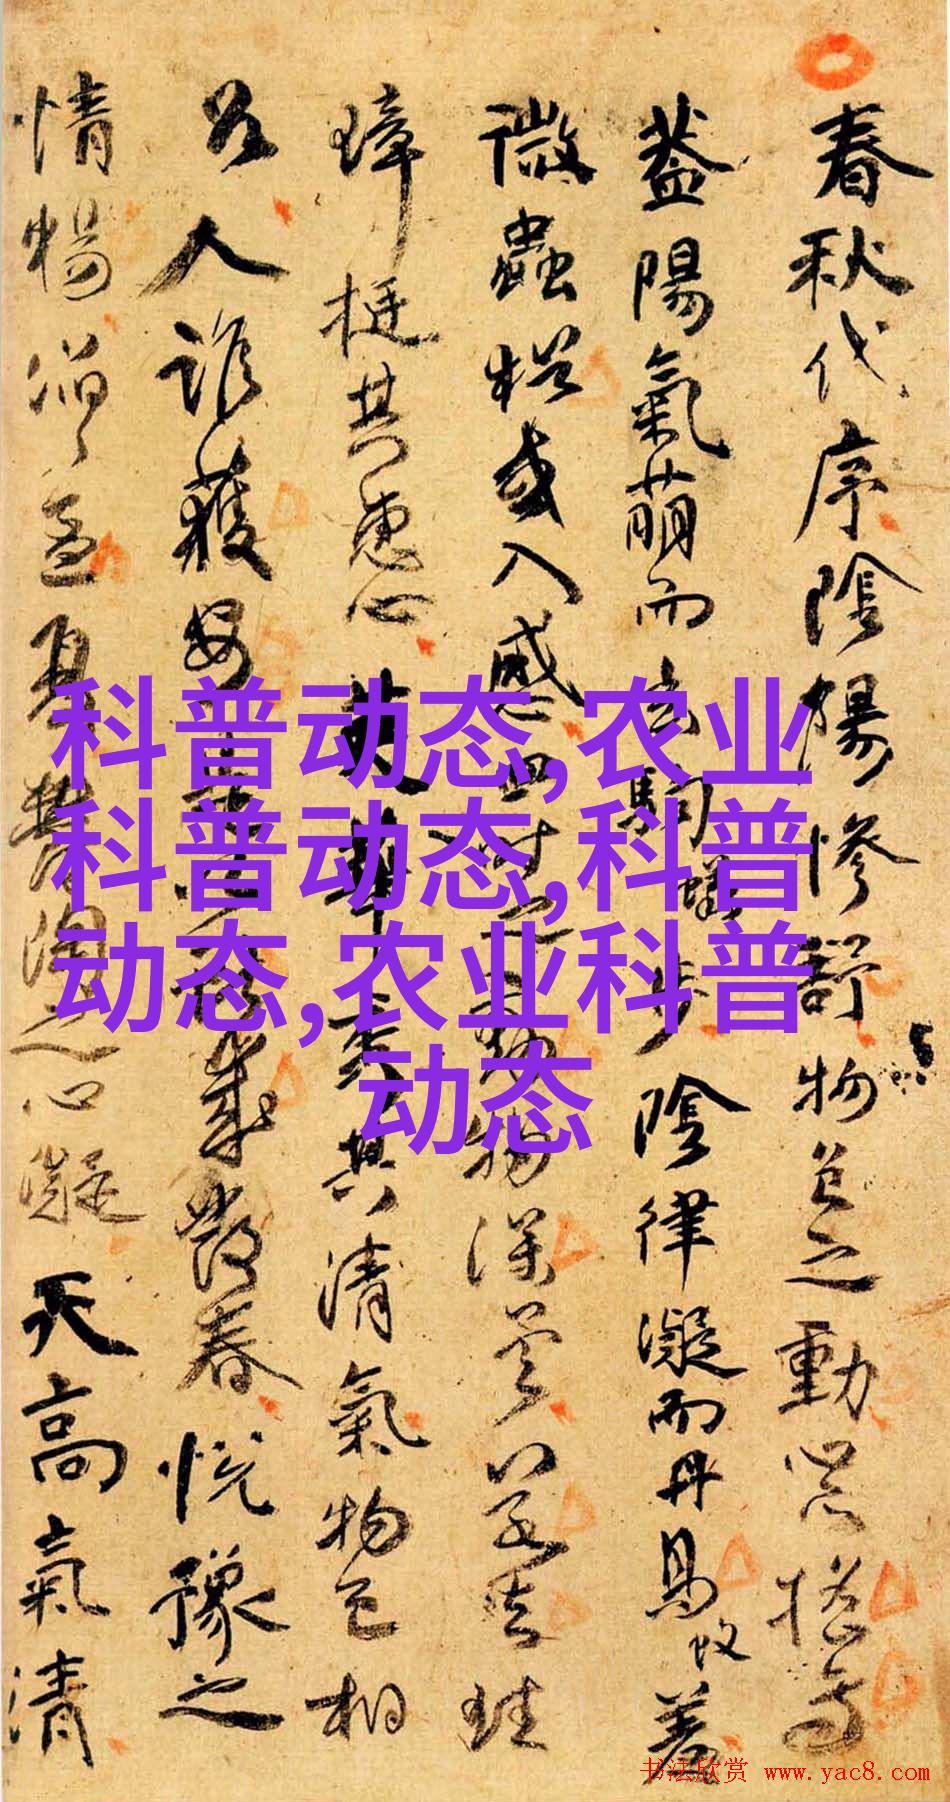 春秋代序陰陽慘舒物色之動心亦搖焉
蓋陽氣萌而玄駒步陰律凝而丹鳥羞
微蟲猶或入感四時之動物深矣若夫珪
璋挺其惠心英華秀其清氣物色相
召人誰獲安是以獻歲發春悅豫之
情暢滔滔孟夏鬱陶之心凝天高氣清
科普动态,农业
科普动态,科普
动态,农业科普
动态
书法欣赏 www.yac8.com